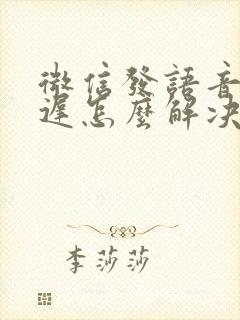 微信發語音
遲怎麼解决
李莎莎